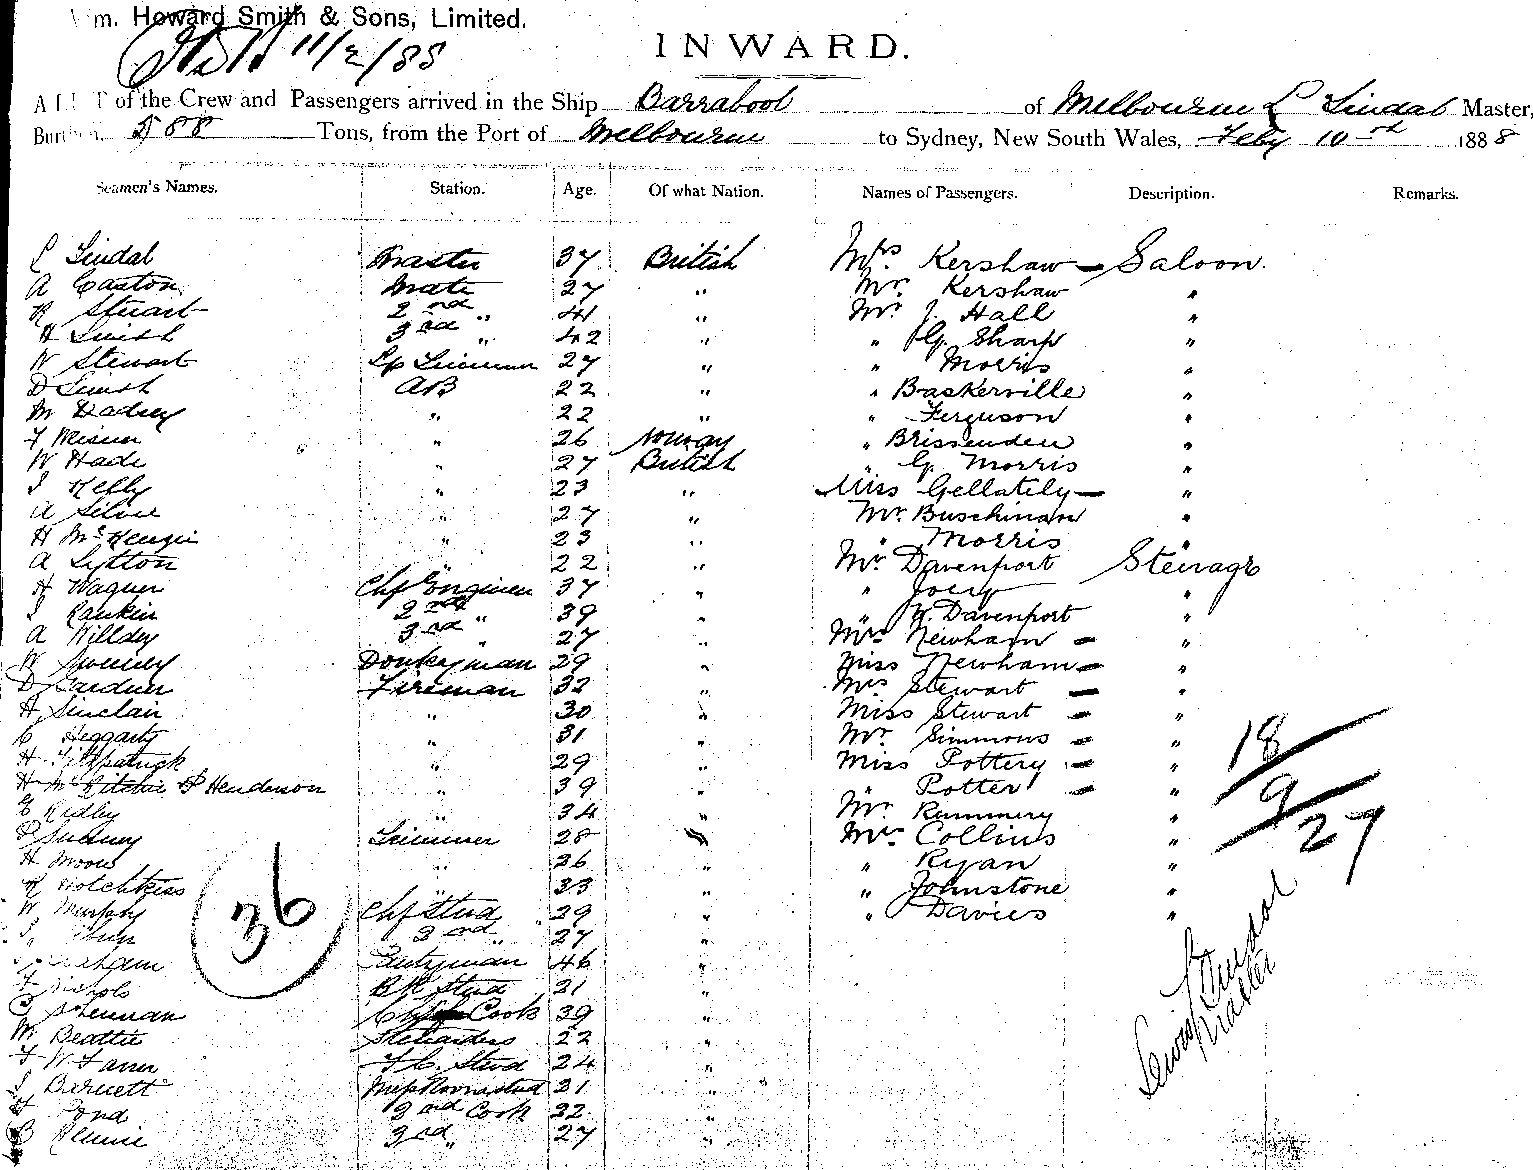 m. Howard Smith & Sons, Limited.
11/2/88
INWARD.
A LIST of the Crew and Passengers arrived in the Ship Barrabool of Melbourne L Lindal Master,
Burthen 588 Tons, from the Port of Melbourne to Sydney, New South Wales, Feby 10th 1888
Seamen's Names. Station. Age. Of what Nation. Names of Passengers. Description. Remarks.
L Lindal Master 37 British Mrs Kershaw — Saloon
A Easton Mate 27 " Mr. Kershaw "
R Stuart 2nd " 41 " Mr. J. Hall "
H Smith 3rd " 42 " " G. Sharp "
W Stewart Lp Trimmer 27 " " Morris "
D Smith AB 22 " " Baskerville "
M Hadley " 22 " " Ferguson "
" 26 Norway " Brissenden "
W Hade " 27 British " G. Morris "
J Kelly " 23 " Miss Gellately — "
A Silver " 27 " Mr. Buschman "
H McKenzie " 23 " " Morris "
A Lytton " 22 " Mr Davenport Steerage
H Wagner Chf Engineer 37 " " "
J Rankin 2nd " 39 " " W. Davenport "
A Willdey 3rd " 27 " Mrs Newham — "
W Sweeney Donkeyman 29 " Miss Newham — "
D Gardner Fireman 32 " Mrs Stewart — "
H Sinclair " 30 " Miss Stewart — "
C Heggarty " 31 " Mrs Simmons — "
H Fitzpatrick " 29 " Miss Pottery — "
H McRitchie P Henderson " 39 " " Potter — "
E Ridley " 34 " Mr. Rummery "
P Sweeney Trimmer 28 " Mr Collins "
H Moore " 26 " " Ryan "
R Hotchkiss " 33 " " Johnstone "
W Murphy Chf Stud 29 " " Davies "
2nd " 27 "
Pantryman 46 "
F Nichols BR Stud 21 "
C Brennan Chf Cook 39 "
M Beattie Stewardess 22 "
F W Farrer F.C. Stud 24 "
J Barnett Messroomstud 21 "
Pond 2nd Cook 32 "
B Rennie 3rd " 27 "
36
18
9
27
Master